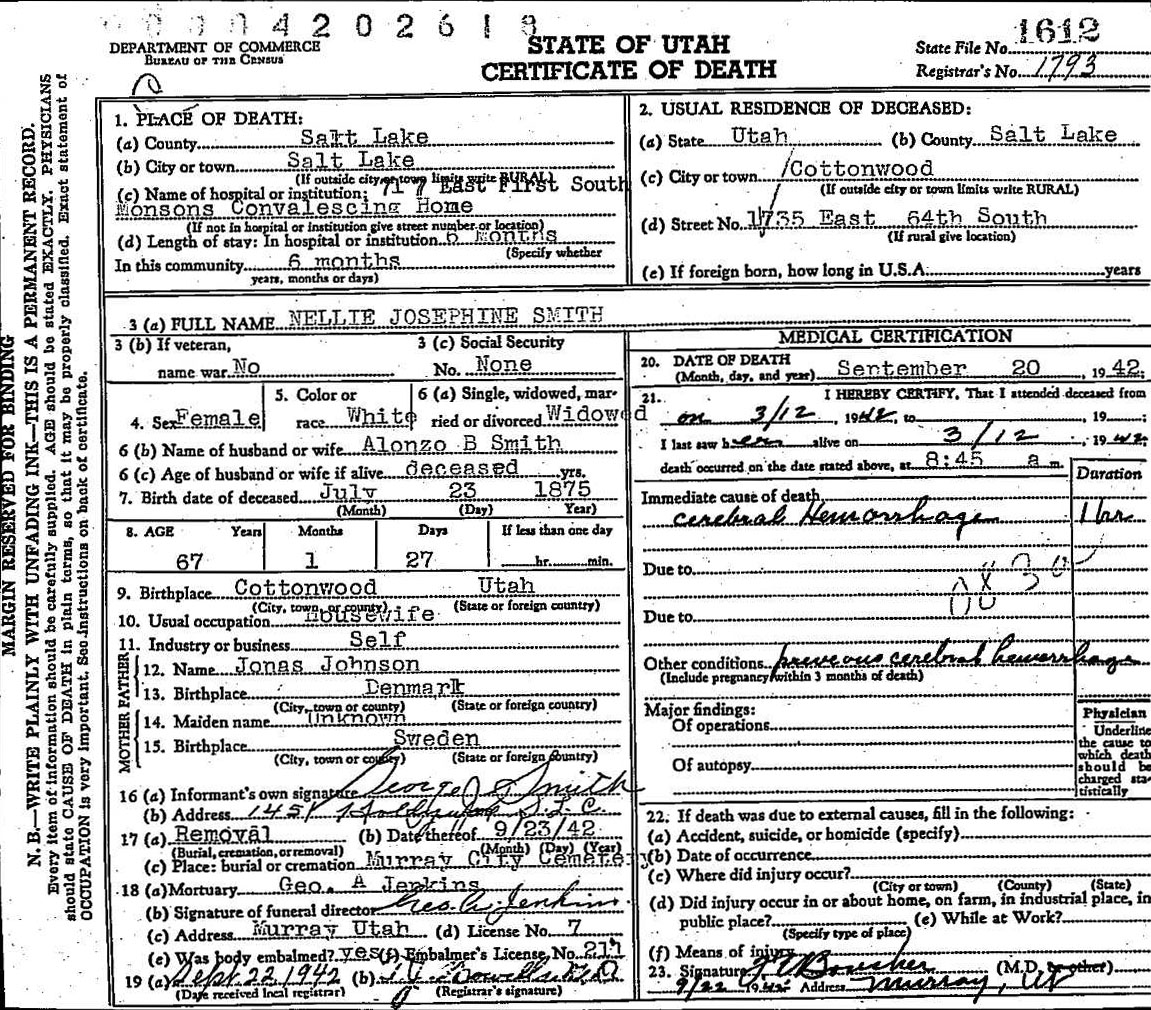 0 0 0 4 2 0 2 6 1 8
DEPARTMENT OF COMMERCE
BUREAU OF THE CENSUS
STATE OF UTAH
CERTIFICATE OF DEATH
State File No. 1612
Registrar's No. 1793
MARGIN RESERVED FOR BINDING
N. B.—WRITE PLAINLY WITH UNFADING INK—THIS IS A PERMANENT RECORD.
Every item of information should be carefully supplied. AGE should be stated EXACTLY. PHYSICIANS
should state CAUSE OF DEATH in plain terms, so that it may be properly classified. Exact statement of
OCCUPATION is very important. See instructions on back of certificate.
1. PLACE OF DEATH:
(a) County Salt Lake
(b) City or town Salt Lake
(If outside city or town limits write RURAL)
(c) Name of hospital or institution: 717 East First South
Monsons Convalescing Home
(If not in hospital or institution give street number or location)
(d) Length of stay: In hospital or institution 6 Months
(Specify whether
In this community 6 months
years, months or days)
2. USUAL RESIDENCE OF DECEASED:
(a) State Utah (b) County Salt Lake
(c) City or town Cottonwood
(If outside city or town limits write RURAL)
(d) Street No. 1735 East 64th South
(If rural give location)
(e) If foreign born, how long in U.S.A. years
3 (a) FULL NAME NELLIE JOSEPHINE SMITH
3 (b) If veteran, 3 (c) Social Security
name war No No. None
4. Sex Female 5. Color or race White 6 (a) Single, widowed, married or divorced Widowed
6 (b) Name of husband or wife Alonzo B Smith
6 (c) Age of husband or wife if alive deceased yrs.
7. Birth date of deceased July 23 1875
(Month) (Day) Year)
8. AGE Years Months Days If less than one day
67 1 27 hr. min.
9. Birthplace Cottonwood Utah
(City, town, or county) (State or foreign country)
10. Usual occupation Housewife
11. Industry or business Self
FATHER
12. Name Jonas Johnson
13. Birthplace Denmark
(City, town or county) (State or foreign country)
MOTHER
14. Maiden name Unknown
15. Birthplace Sweden
(City, town or county) (State or foreign country)
16 (a) Informant's own signature George J Smith
(b) Address 1451 S.L.C.
17 (a) Removal (b) Date thereof 9/23/42
(Burial, cremation, or removal) (Month) (Day) (Year)
(c) Place: burial or cremation Murray City Cemetery
18 (a) Mortuary Geo. A Jenkins
(b) Signature of funeral director Geo. A. Jenkins
(c) Address Murray Utah (d) License No. 7
(e) Was body embalmed? yes (f) Embalmer's License, No. 211
19 (a) Sept 22, 1942 (b)
(Date received local registrar) (Registrar's signature)
MEDICAL CERTIFICATION
20. DATE OF DEATH
(Month, day, and year) September 20, 19 42;
21. I HEREBY CERTIFY, That I attended deceased from
on 3/12, 1942, to , 19 ;
I last saw her alive on 3/12, 1942
death occurred on the date stated above, at 8:45 a m.
Duration
Immediate cause of death
cerebral Hemorrhage 1 hr
Due to
Due to
Other conditions preveous cerebral hemorrhage
(Include pregnancy within 3 months of death)
Major findings:
Of operations
Of autopsy
Physician
Underline
the cause to
which death
should be
charged sta-
tistically
22. If death was due to external causes, fill in the following:
(a) Accident, suicide, or homicide (specify)
(b) Date of occurrence
(c) Where did injury occur?
(City or town) (County) (State)
(d) Did injury occur in or about home, on farm, in industrial place, in
public place? (e) While at Work?
(Specify type of place)
(f) Means of injury
23. Signature Boucher (M.D. or other)
9/22 1942 Address Murray, Ut